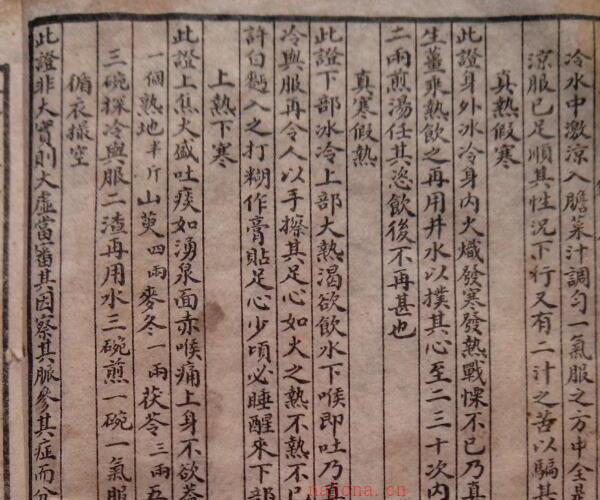 冷水中激涼入膽菜汁調勻一氣服之方中全是
涼服已足順其性況下行又有二汁之苦以騙其
真熱假寒
此證身外冰冷身內火熾發寒發熱戰慄不已乃真
生薑乘熱飲之再用井水以撲其心至二三十次內
二兩煎湯任其恣飲後不再甚也
真寒假熱
此證下部冰冷上部大熱渴欲飲水下喉即吐乃真
冷與服再令人以手擦其足心如火之熱不熱不已
許白麵入之打糊作膏貼足心少頃必睡醒來下部
上熱下寒
此證上焦火盛吐痰如湧泉面赤喉痛上身不欲葢
一個熟地半斤山萸四兩麥冬一兩茯苓三兩五
三碗探冷與服二渣再用水三碗煎一碗一氣服
循衣撮空
此證非大實則大虛當審其因察其脈參其症而分
nafiona.cn